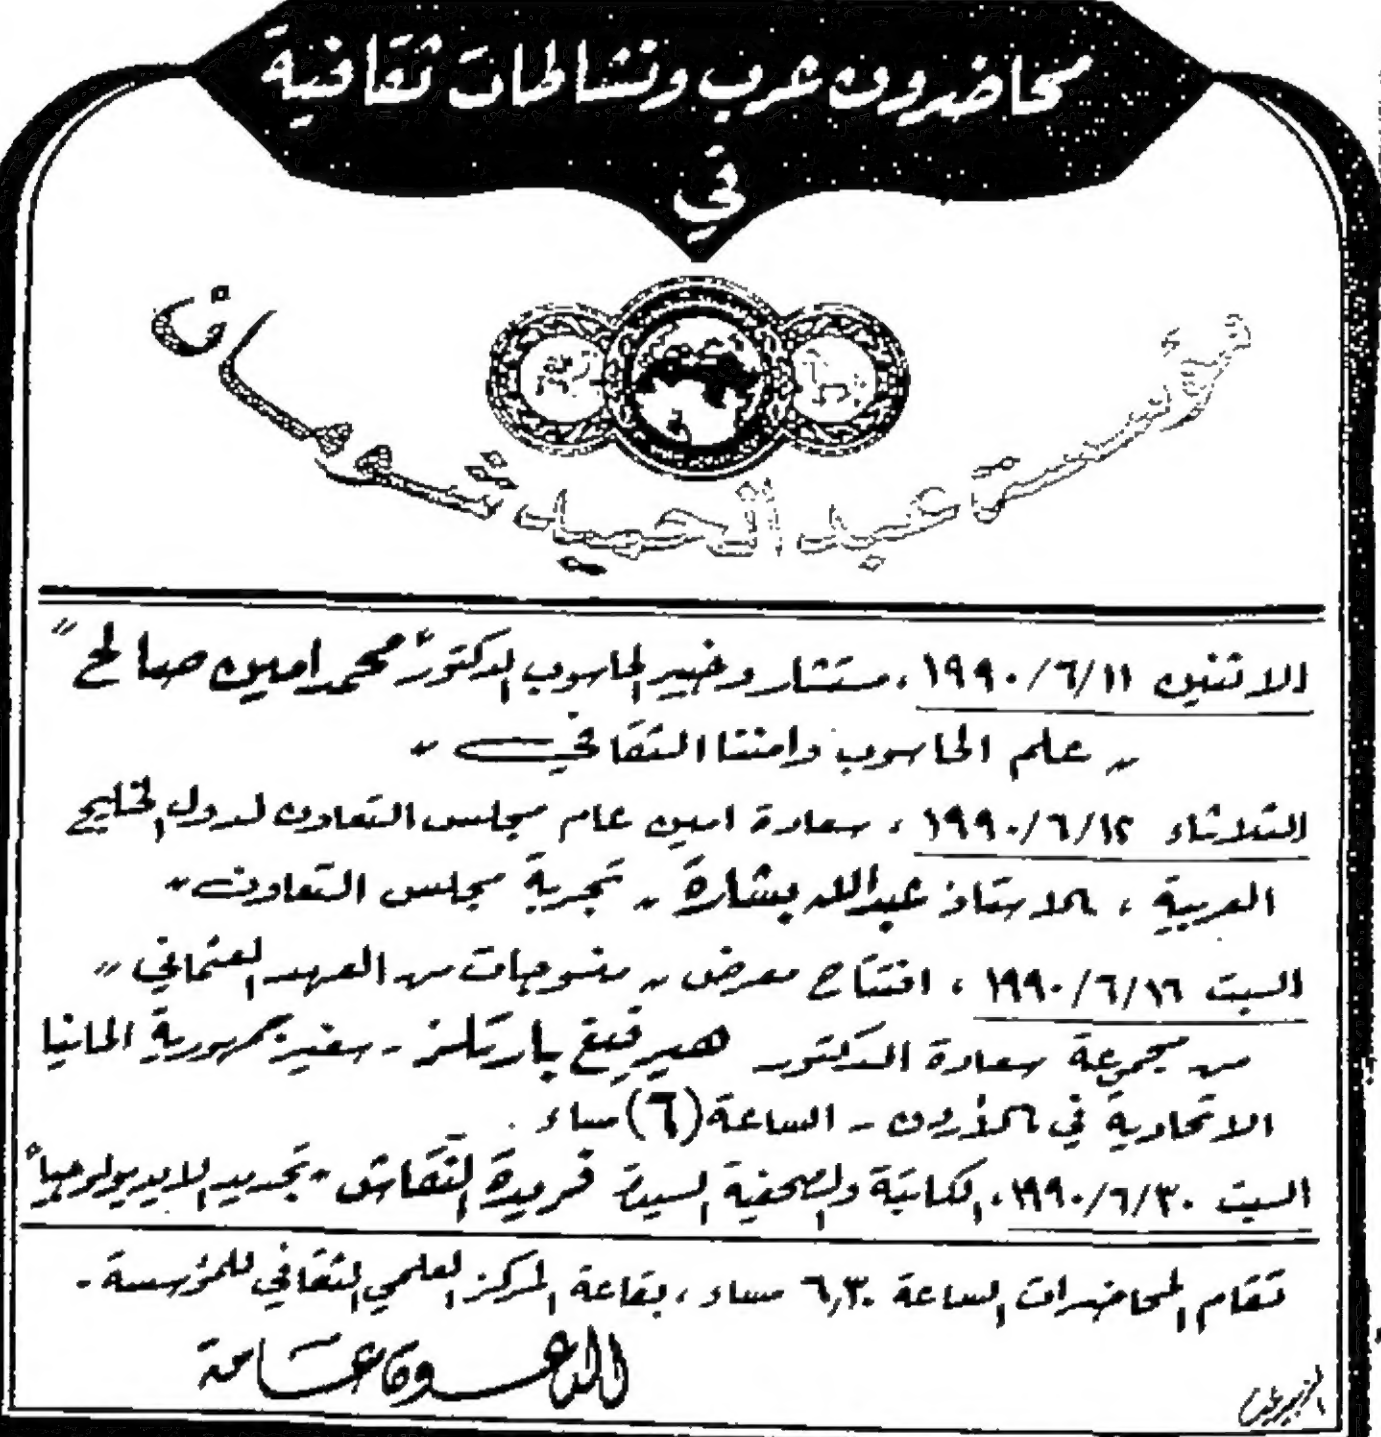 محاضرون عرب ونشاطات ثقافية
في
مؤسسة عبد الحميد شومان
الاثنين ١٩٩٠/٦/١١ ، مستشار وخبير الحاسوب الدكتور "محمد امين صالح"
" علم الحاسوب وامننا الثقافي "
الثلاثاء ١٩٩٠/٦/١٢ ، سعادة امين عام مجلس التعاون لدول الخليج
العربية ، الاستاذ عبدالله بشارة " تجربة مجلس التعاون "
السبت ١٩٩٠/٦/١٦ ، افتتاح معرض " منسوجات من العهد العثماني "
من مجموعة سعادة الدكتور هيرفيغ بارتلز - سفير جمهورية المانيا
الاتحادية في الأردن - الساعة (٦) مساء .
السبت ١٩٩٠/٦/٣٠ ، الكاتبة والصحفية السيدة فريدة النقاش "تجديد الايديولوجيا"
تقام المحاضرات الساعة ٦,٣٠ مساء ، بقاعة المركز العلمي الثقافي للمؤسسة -
الدعوة عامة